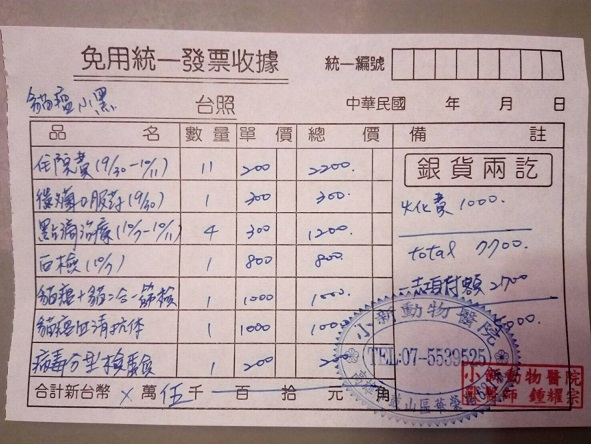 免用統一發票收據
統一編號
貓瘟小黑 台照 中華民國 年 月 日
品名 數量 單價 總價 備註
住院費(9/30-10/11) 11 200 2200.
1 300 300.
點滴治療(10/7-10/11) 4 300 1200.
血檢(10/7) 1 800 800.
貓瘟+貓二合一篩檢 1 1000 1000.
貓瘟血清抗体 1 1000
病毒分型檢 1 200
銀貨兩訖
火化費 1000.
total 7700.
付額 2700
小新動物醫院
TEL:07-5539525
小新動物醫院
鍾耀宗
合計新台幣 × 萬 伍 千 百 拾 元 角